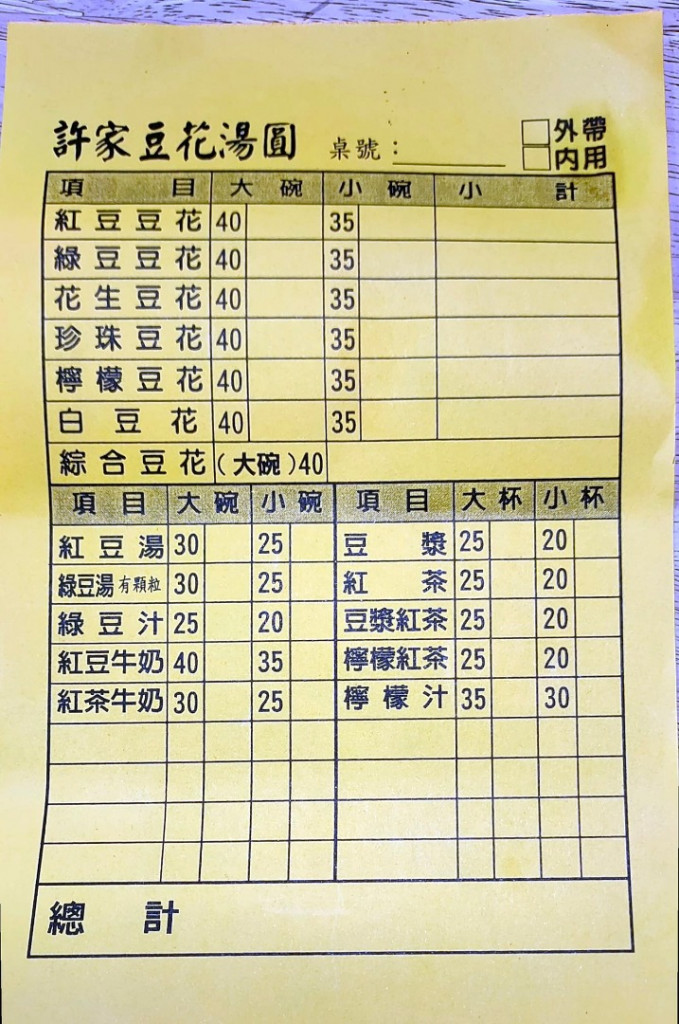 許家豆花湯圓 桌號：________ □外帶
□內用
項目 大碗 小碗 小計
紅豆豆花 40 35
綠豆豆花 40 35
花生豆花 40 35
珍珠豆花 40 35
檸檬豆花 40 35
白豆花 40 35
綜合豆花 (大碗)40
項目 大碗 小碗 項目 大杯 小杯
紅豆湯 30 25 豆漿 25 20
綠豆湯有顆粒 30 25 紅茶 25 20
綠豆汁 25 20 豆漿紅茶 25 20
紅豆牛奶 40 35 檸檬紅茶 25 20
紅茶牛奶 30 25 檸檬汁 35 30
總計